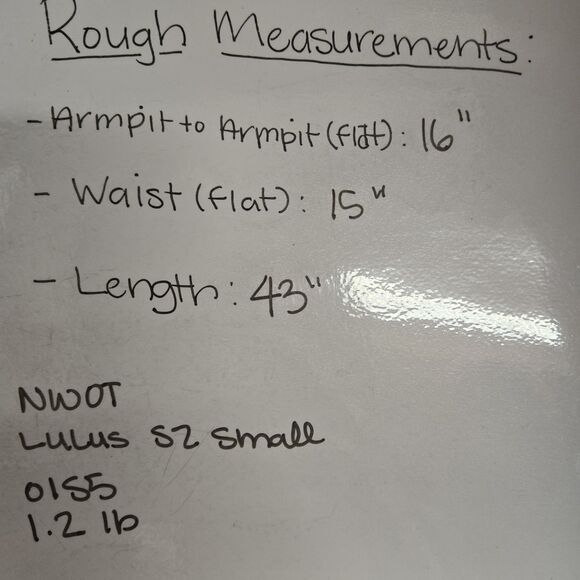 Rough Measurements:
- Armpit to Armpit (flat): 16"
- Waist (flat): 15"
- Length: 43"
NWOT
LULUS SZ Small
0155
1.2 lb